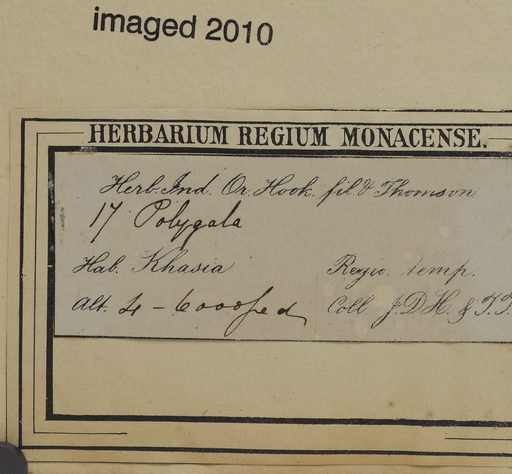 imaged 2010
HERBARIUM REGIUM MONACENSE.
Herb. Ind. Or. Hook. fil & Thomson
17 Polygala
Hab. Khasia Regio. temp.
Alt. 4 - 6000 ped Coll. J.D.H. & T.T.